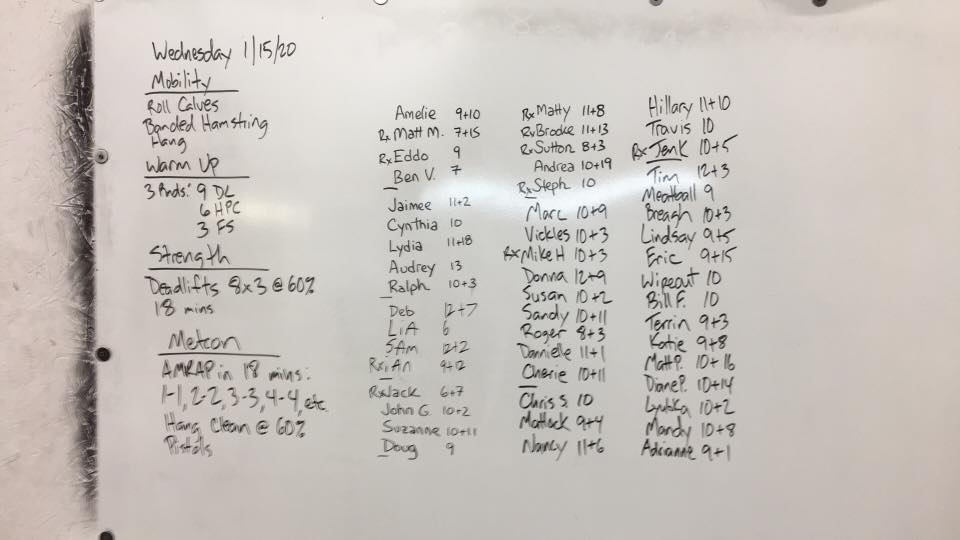 Wednesday 1/15/20
Mobility
Roll Calves
Banded Hamstring
Hang
Warm Up
3 Rnds: 9 DL
6 HPC
3 FS
Strength
Deadlifts 8x3 @ 60%
18 mins
Metcon
AMRAP in 18 mins:
1-1, 2-2, 3-3, 4-4, etc.
Hang Clean @ 60%
Pistols
Amelie 9+10
Rx Matt M. 7+15
Rx Eddo 9
Ben V. 7
Jaimee 11+2
Cynthia 10
Lydia 11+18
Audrey 13
Ralph 10+3
Deb 12+7
LiA 6
SAm 12+2
Rx iAn 9+12
Rx Jack 6+7
John G. 10+2
Suzanne 10+11
Doug 9
Rx Matty 11+8
Rx Brooke 11+13
Rx Sutton 8+3
Andrea 10+19
Rx Steph 10
Marc 10+9
Vickles 10+3
Rx Mike H 10+3
Donna 12+9
Susan 10+2
Sandy 10+11
Roger 8+3
Dannielle 11+1
Cherie 10+11
Chris S. 10
Matlock 9+4
Nancy 11+6
Hillary 11+10
Travis 10
Rx Jenk 10+5
Tim 12+3
Meatball 9
Breagh 10+3
Lindsay 9+5
Eric 9+15
Wipeout 10
Bill F. 10
Terrin 9+3
Katie 9+8
Matt P. 10+16
Diane P. 10+14
10+2
Mandy 10+8
Adrianne 9+1